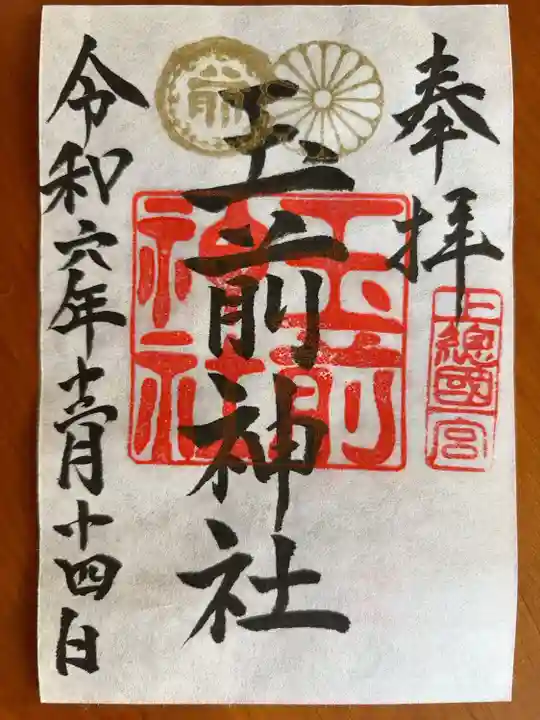 奉拝
上總國一宮
玉前神社
玉前
神社
前
令和六年十二月十四日